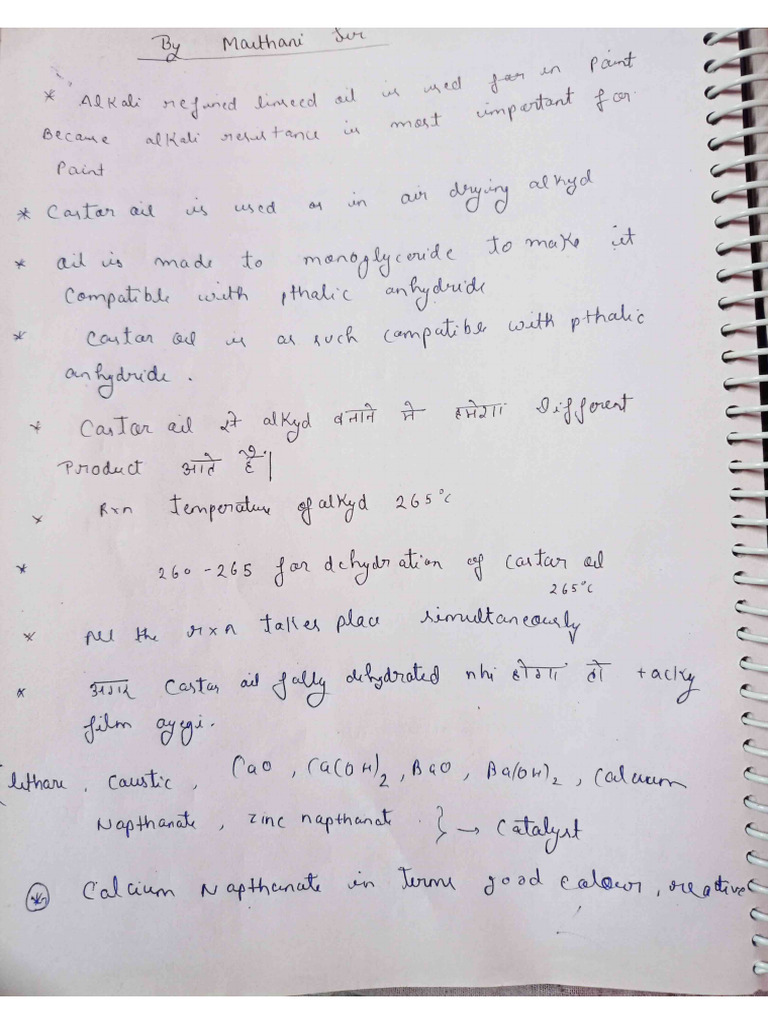 By Maithani Sir
* Alkali refined linseed oil is used for in Paint
Because alkali resistance is most important for
Paint
* Castar oil is used as in air drying alkyd
* oil is made to monoglyceride to make it
Compatible with pthalic anhydride
* Castar oil is as such compatible with pthalic
anhydride.
* Castar oil से alkyd बनाने मे हमेशा Different
Product आते है।
* Rxn Temperature of alkyd 265°c
* 260-265 for dehydration of Castar oil
265°c
* All the rxn takes place simultaneously
* अगर Castar oil fully dehydrated nhi होगा तो tacky
film ayegi.
lithare, Caustic, CaO, Ca(OH)2, BaO, Ba(OH)2, Calcium
Napthanate, Zinc napthanat } → Catalyst
* Calcium Napthanate in terms good colour, reactive